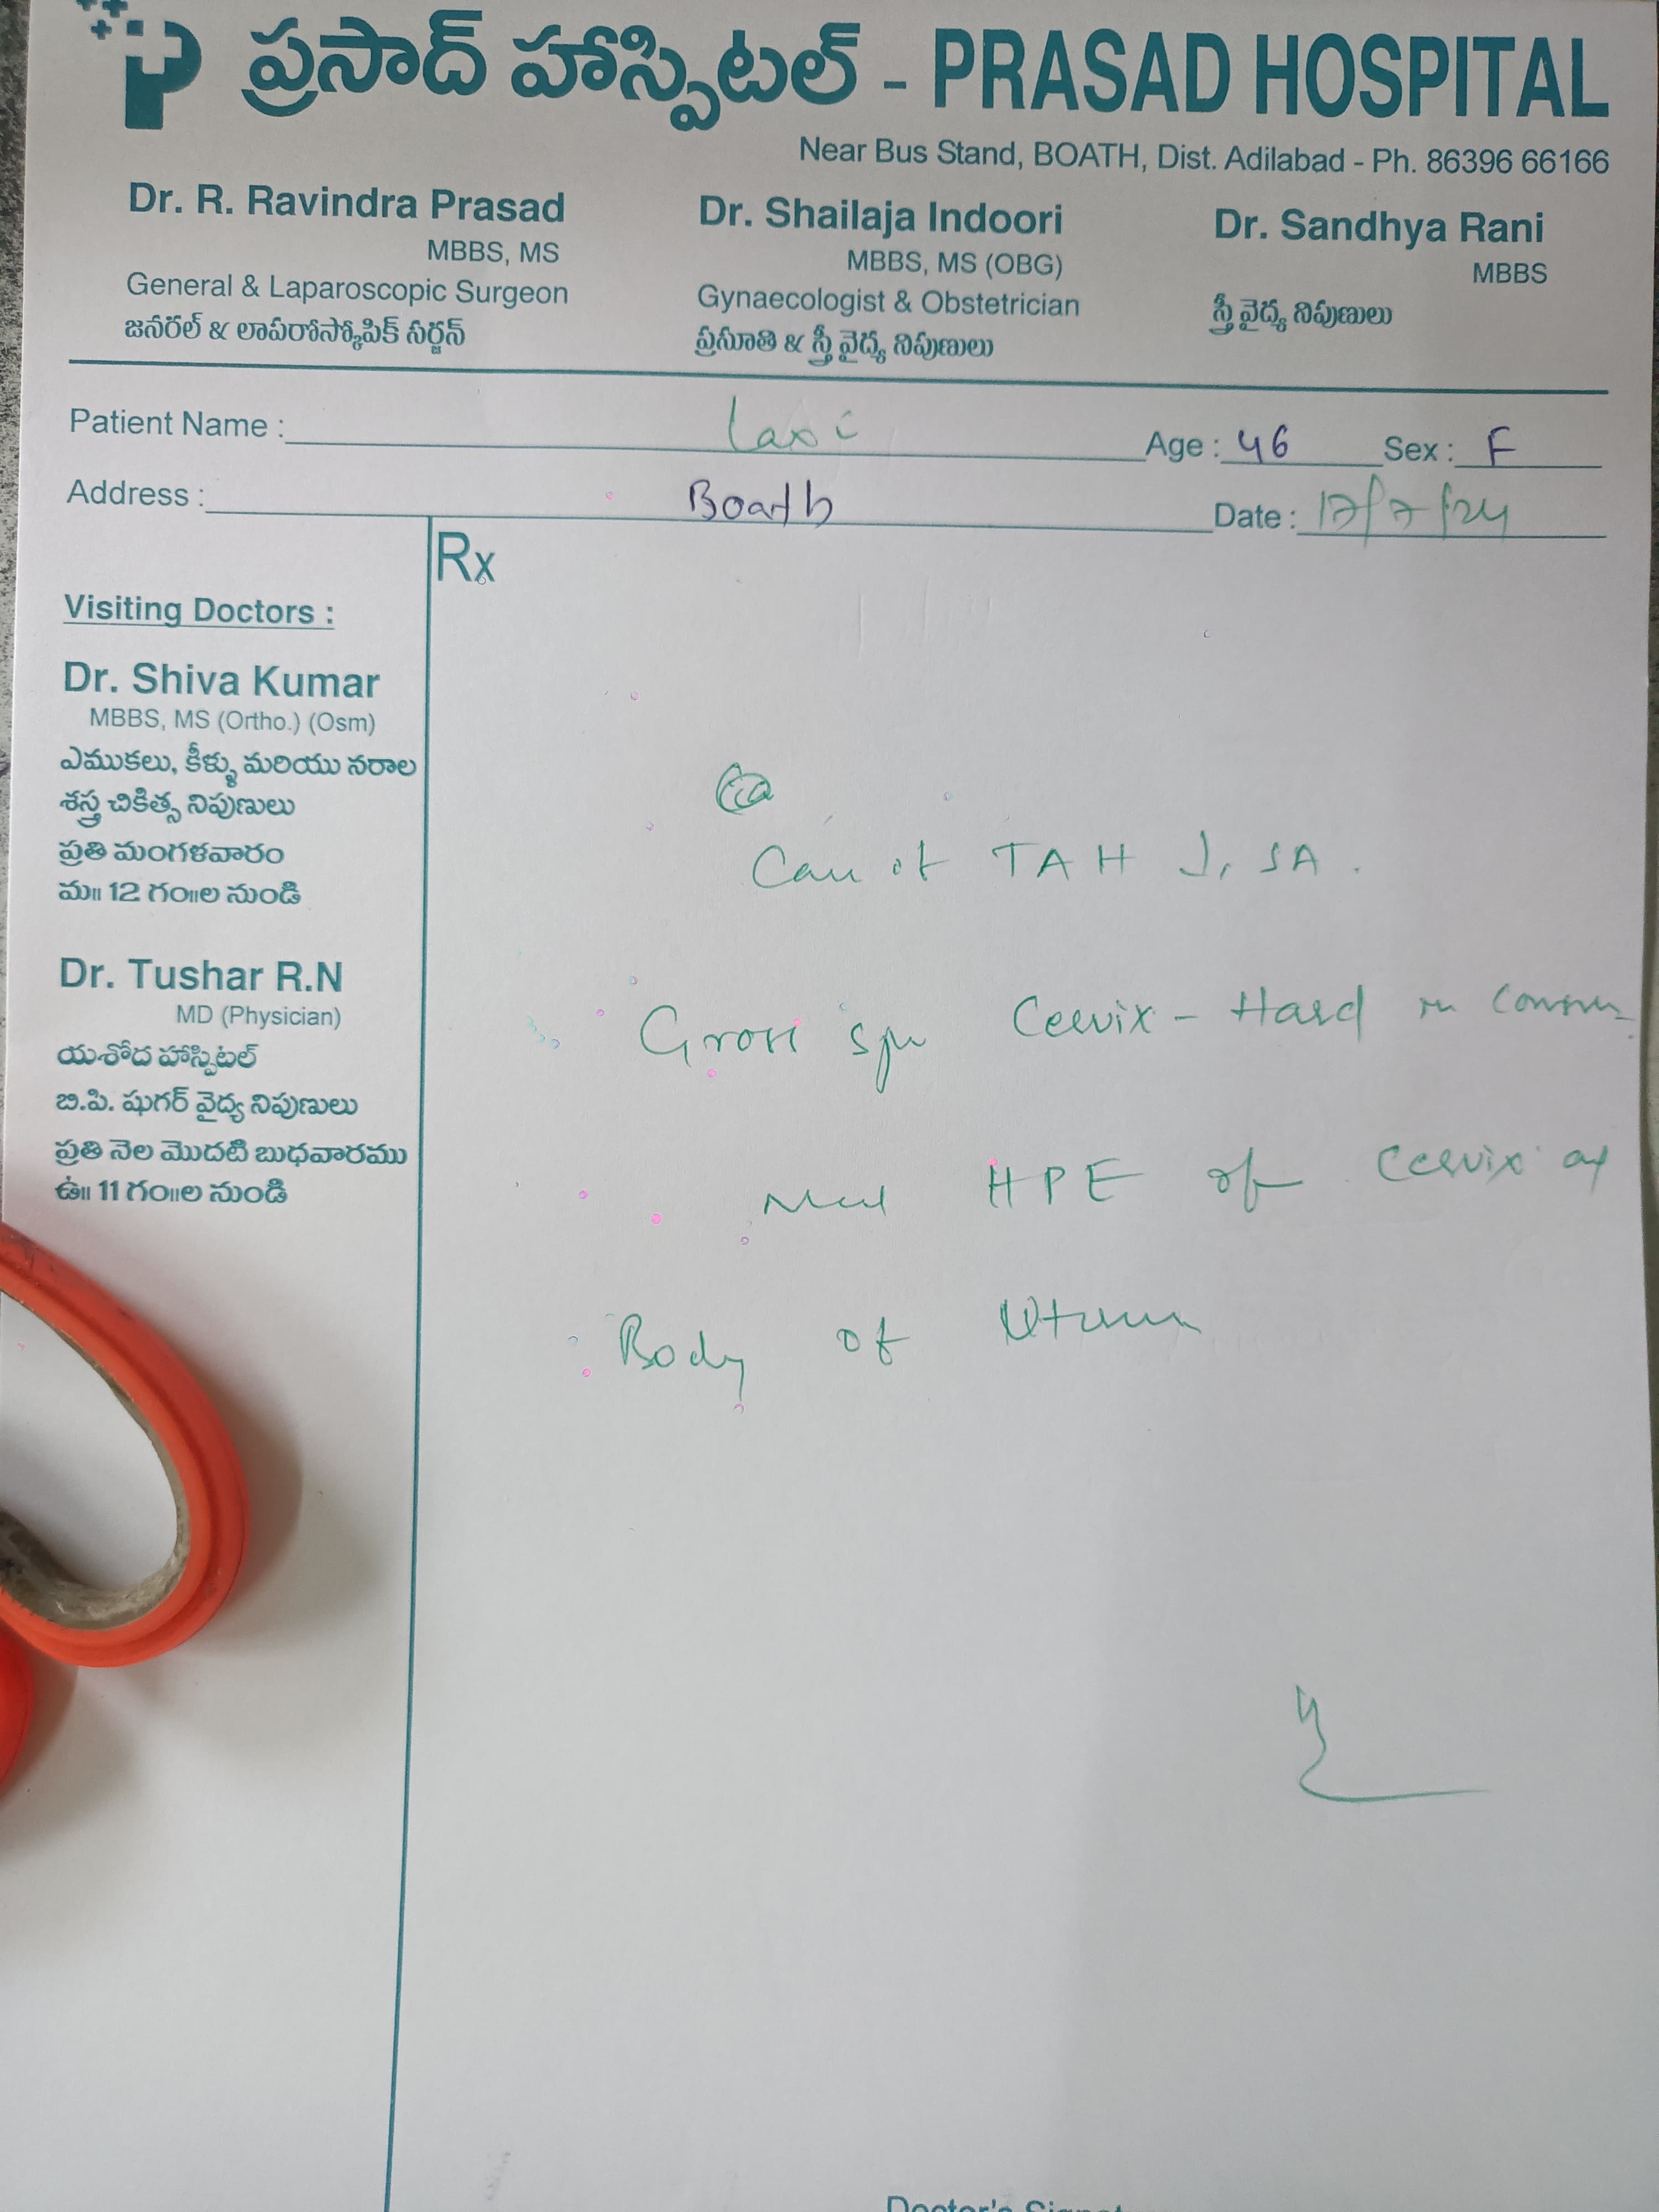 ప్రసాద్ హాస్పిటల్ - PRASAD HOSPITAL
Near Bus Stand, BOATH, Dist. Adilabad - Ph. 86396 66166
Dr. R. Ravindra Prasad
MBBS, MS
General & Laparoscopic Surgeon
జనరల్ & లాపరోస్కోపిక్ సర్జన్
Dr. Shailaja Indoori
MBBS, MS (OBG)
Gynaecologist & Obstetrician
ప్రసూతి & స్త్రీ వైద్య నిపుణులు
Dr. Sandhya Rani
MBBS
స్త్రీ వైద్య నిపుణులు
Patient Name : Laxi Age : 46 Sex : F
Address : Boath Date : 17/7/24
Rx
Visiting Doctors :
Dr. Shiva Kumar
MBBS, MS (Ortho.) (Osm)
ఎముకలు, కీళ్ళు మరియు నరాల
శస్త్ర చికిత్స నిపుణులు
ప్రతి మంగళవారం
మ॥ 12 గం॥ల నుండి
Dr. Tushar R.N
MD (Physician)
యశోద హాస్పిటల్
బి.పి. షుగర్ వైద్య నిపుణులు
ప్రతి నెల మొదటి బుధవారము
ఉ॥ 11 గం॥ల నుండి
of TAH SA.
Gross Cervix - Hard in
HPE of Cervix
Body of Uterus